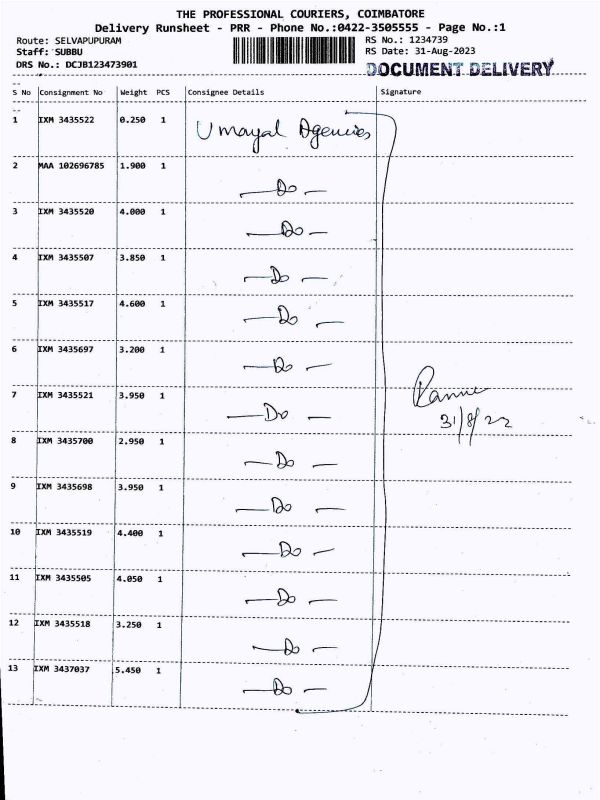 THE PROFESSIONAL COURIERS, COIMBATORE
Delivery Runsheet - PRR - Phone No.:0422-3505555 - Page No.:1
Route: SELVAPUPURAM RS No.: 1234739
Staff: SUBBU RS Date: 31-Aug-2023
DRS No.: DCJB123473901 DOCUMENT DELIVERY
S No Consignment No Weight PCS Consignee Details Signature
1 IXM 3435522 0.250 1 Umayal Agencies
2 MAA 102696785 1.900 1 — Do —
3 IXM 3435520 4.000 1 — Do —
4 IXM 3435507 3.850 1 — Do —
5 IXM 3435517 4.600 1 — Do —
6 IXM 3435697 3.200 1 — Do —
7 IXM 3435521 3.950 1 — Do —
31/8/23
8 IXM 3435700 2.950 1 — Do —
9 IXM 3435698 3.950 1 — Do —
10 IXM 3435519 4.400 1 — Do —
11 IXM 3435505 4.050 1 — Do —
12 IXM 3435518 3.250 1 — Do —
13 IXM 3437037 5.450 1 — Do —